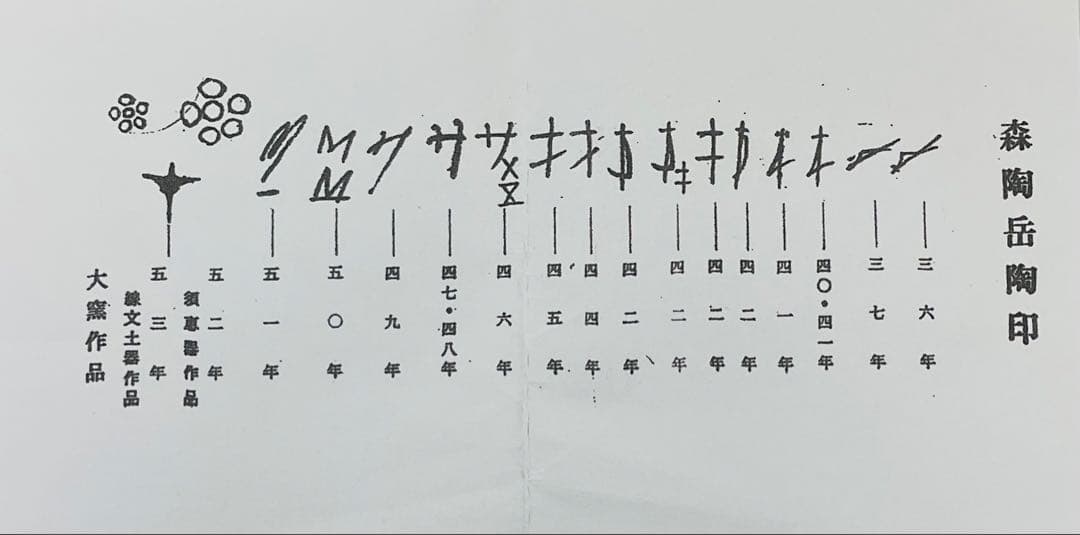 森陶岳陶印
三六年
三七年
四〇・四一年
四一年
四二年
四二年
四二年
四二年
四四年
四五年
四六年
四七・四八年
四九年
五〇年
五一年
五二年
須恵器作品
五三年
縁文土器作品
大窯作品